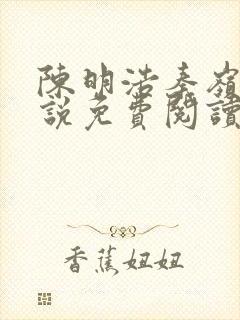 陳明浩秦嶺
說免費閱讀
香蕉妞妞